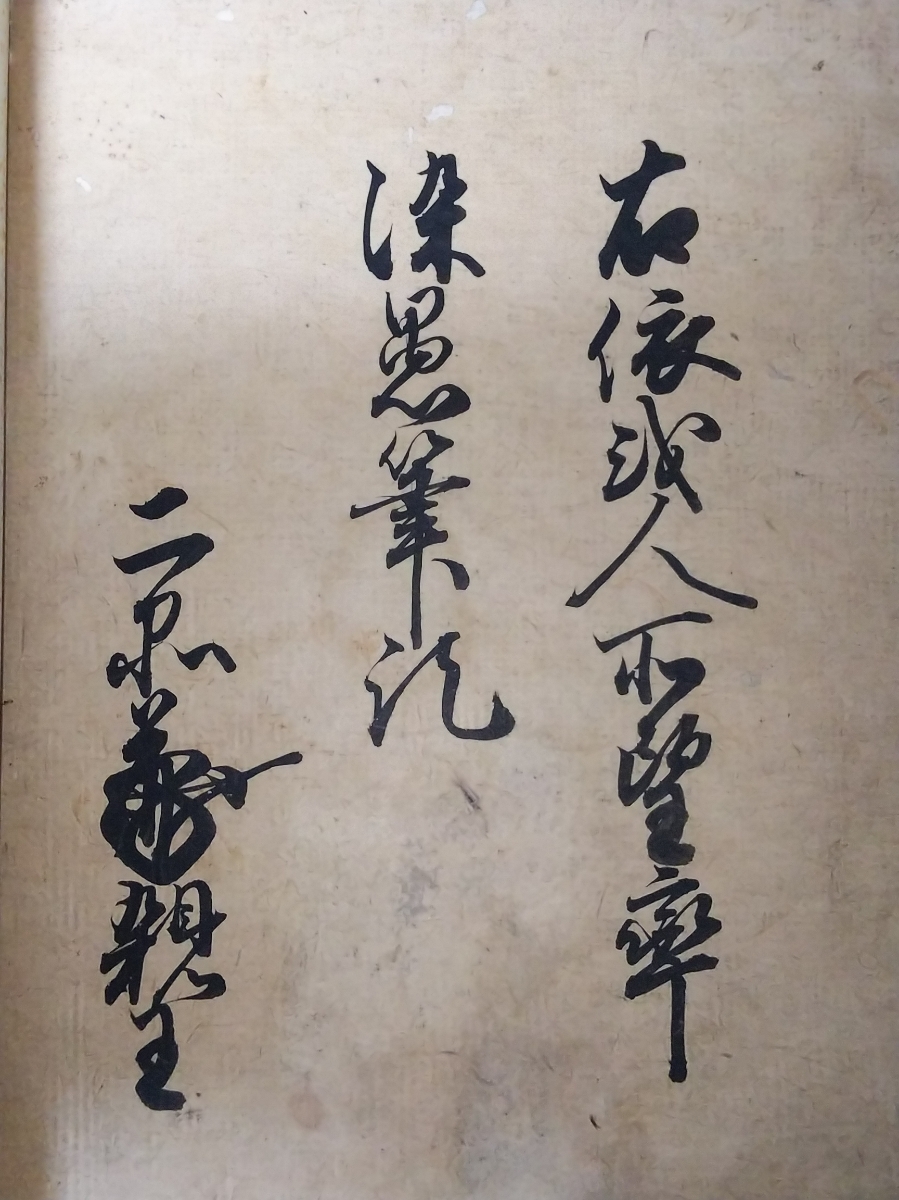 右依或人所望率
染愚筆訖
二品親王